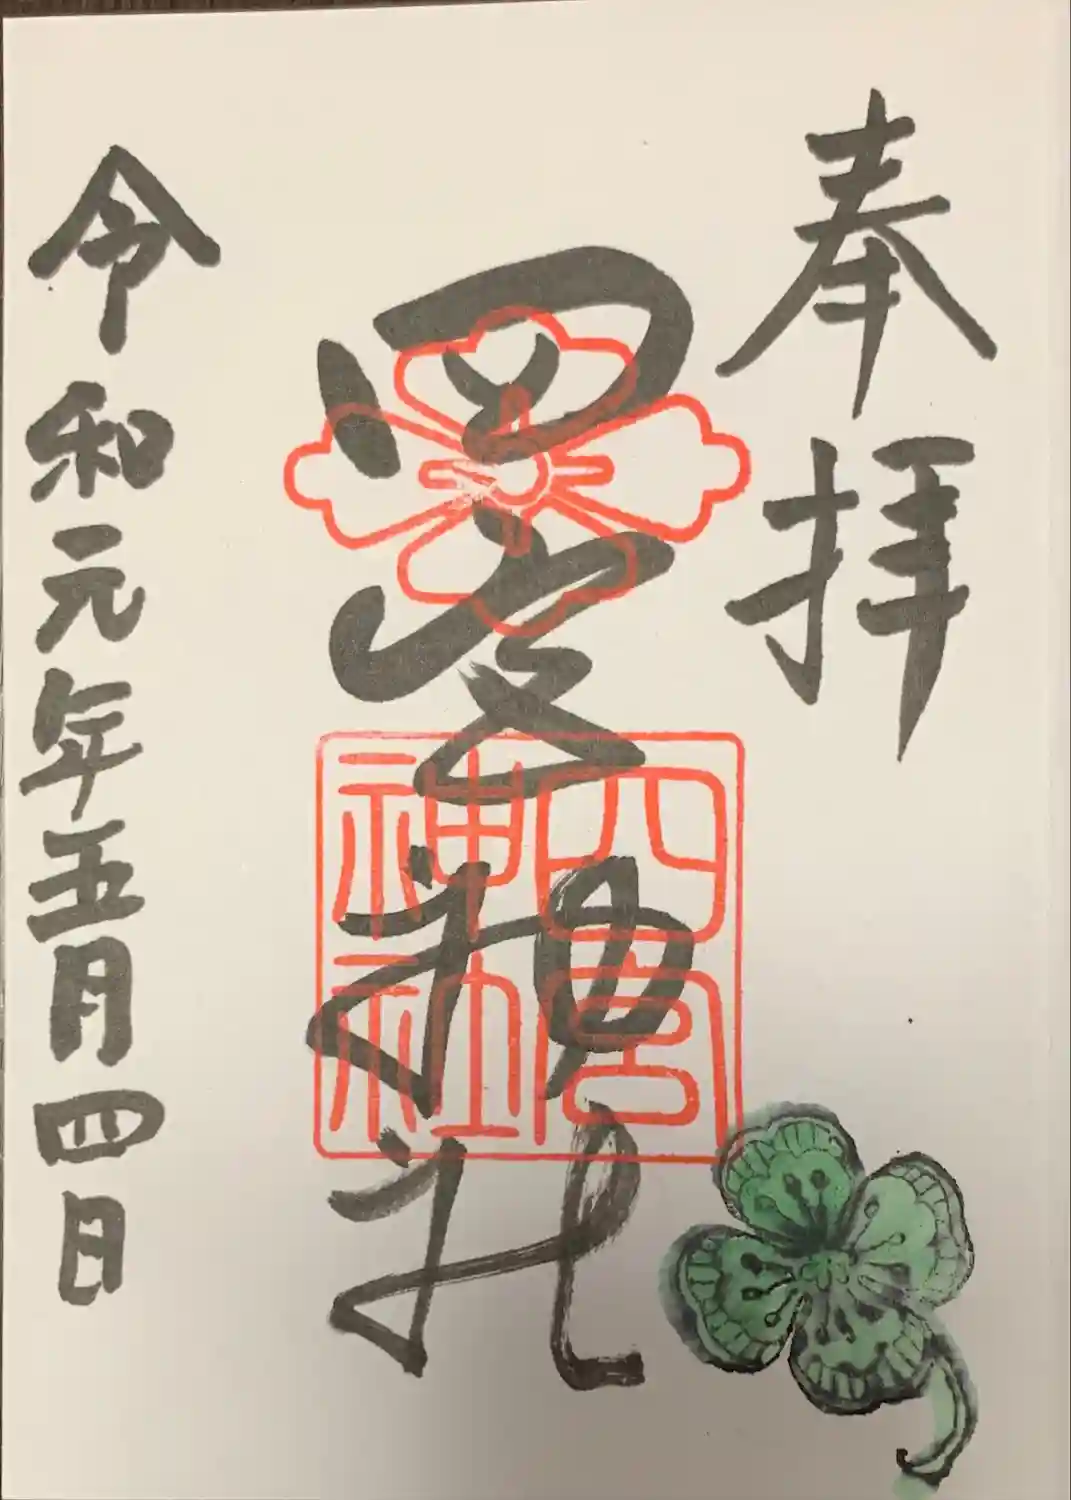 奉拝
四宮神社
四宮神社
令和元年五月四日